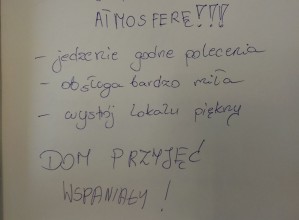 ATMOSFERĘ!!!
- jedzenie godne polecenia
- obsługa bardzo miła
- wystrój lokalu piękny
DOM PRZYJĘĆ
WSPANIAŁY!